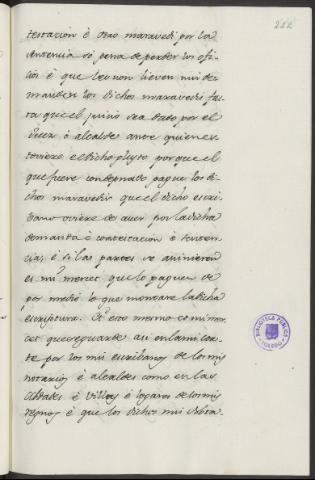 222
testacion è otro maravedi por la
sentencia só pena de perder los ofi
cios è que leo non lieven nin de
manden los dichos maravedis fas
ta que el juicio sea dado por el
Juez ò alcalde ante quien es
toviere el dicho pleyto por que el
que fuere condepnado pague los di
chos maravedis que el dicho escri
bano oviere de aver por la dicha
demanda è contestacion è senten
cia, è si las partes se avinieren
es mi merced que lo paguen de
por medio lo que montare la dicha
escriptura. Otro esto mesmo es mi mer
cet que se guarde asi en la mi cor
te por los mis escribanos de los mis
notarios è alcaldes como en las
cibdades è villas è logares de los mis
regnos è que los dichos mis escriba
BIBLIOTECA PUBLICA
TOLEDO